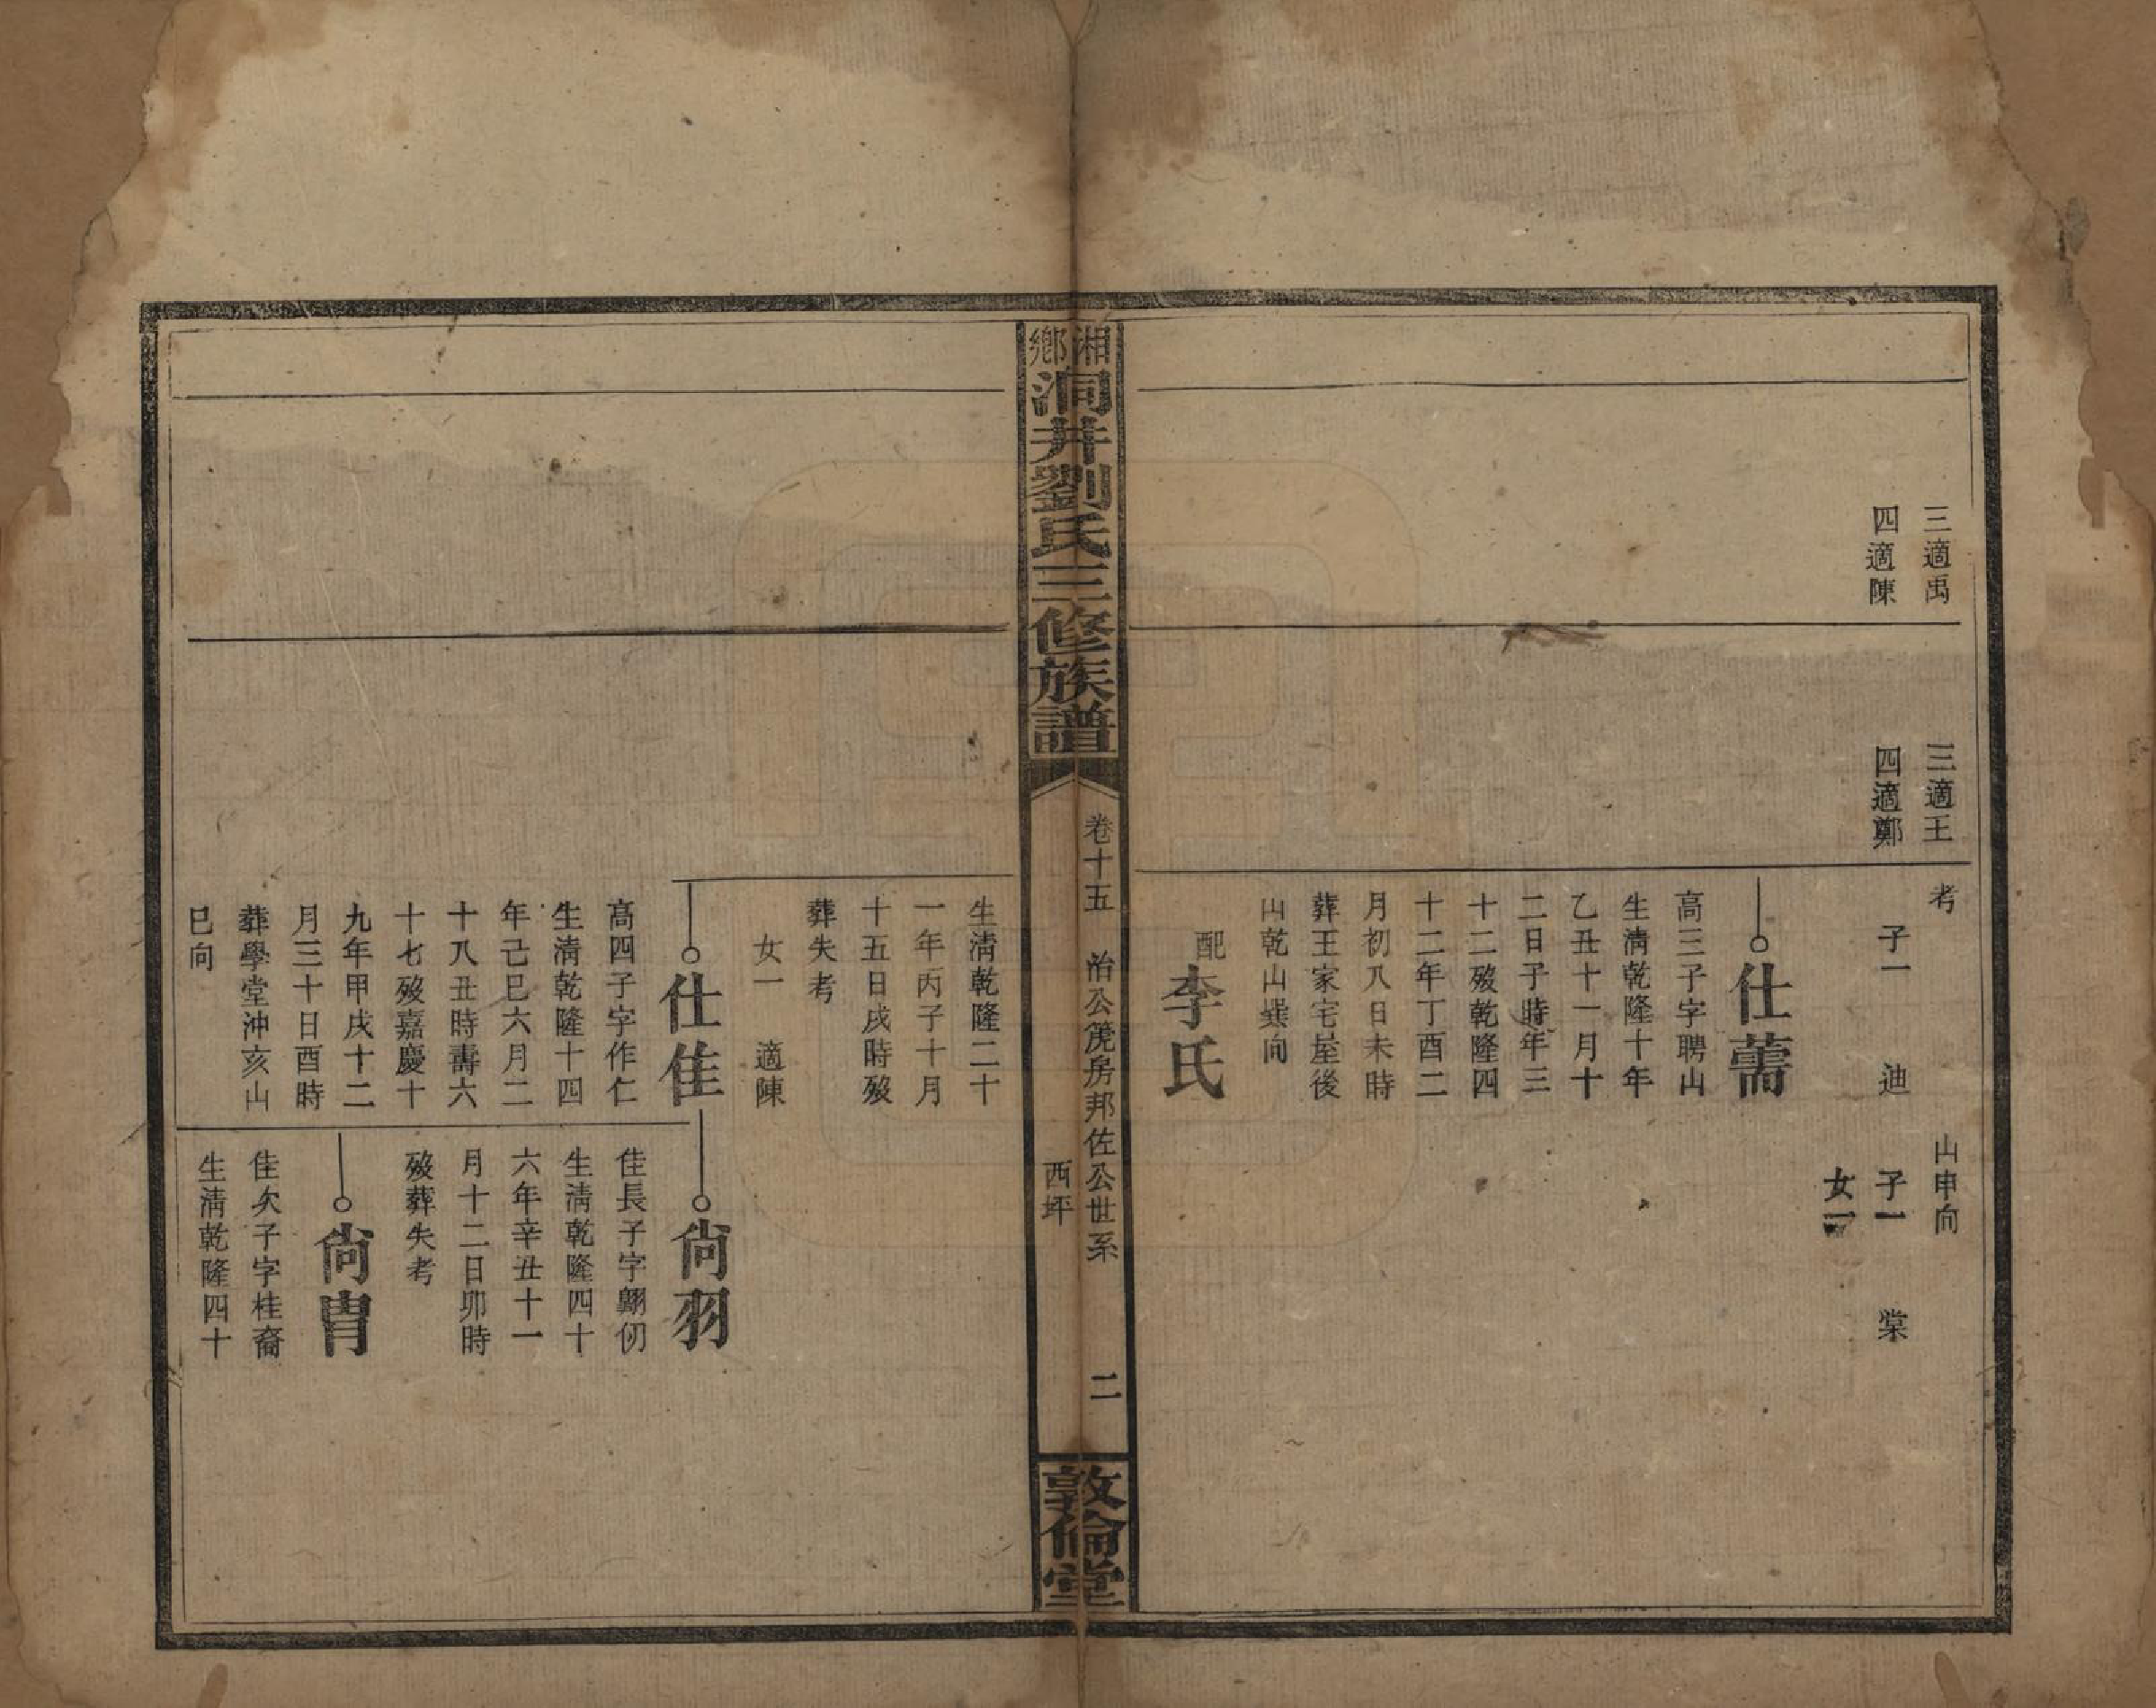 三適禹
四適陳
三適王
四適鄭
考
子一　迪
山申向
子一　棠
女一
仕薷
高三子字聘山
生清乾隆十年
乙丑十一月十
二日子時年三
十二殁乾隆四
十二年丁酉二
月初八日未時
葬王家宅屋後
山乾山巽向
配李氏
湘鄉洞井劉氏三修族譜
卷十五　治公茂房邦佐公世系　二
西坪
敦倫堂
生清乾隆二十
一年丙子十月
十五日戌時殁
葬失考
女一　適陳
仕佳
高四子字作仁
生清乾隆十四
年己巳六月二
十八丑時壽六
十七殁嘉慶十
九年甲戌十二
月三十日酉時
葬學堂沖亥山
巳向
尙羽
佳長子字翺仞
生清乾隆四十
六年辛丑十一
月十二日卯時
殁葬失考
尙冑
佳次子字桂裔
生清乾隆四十